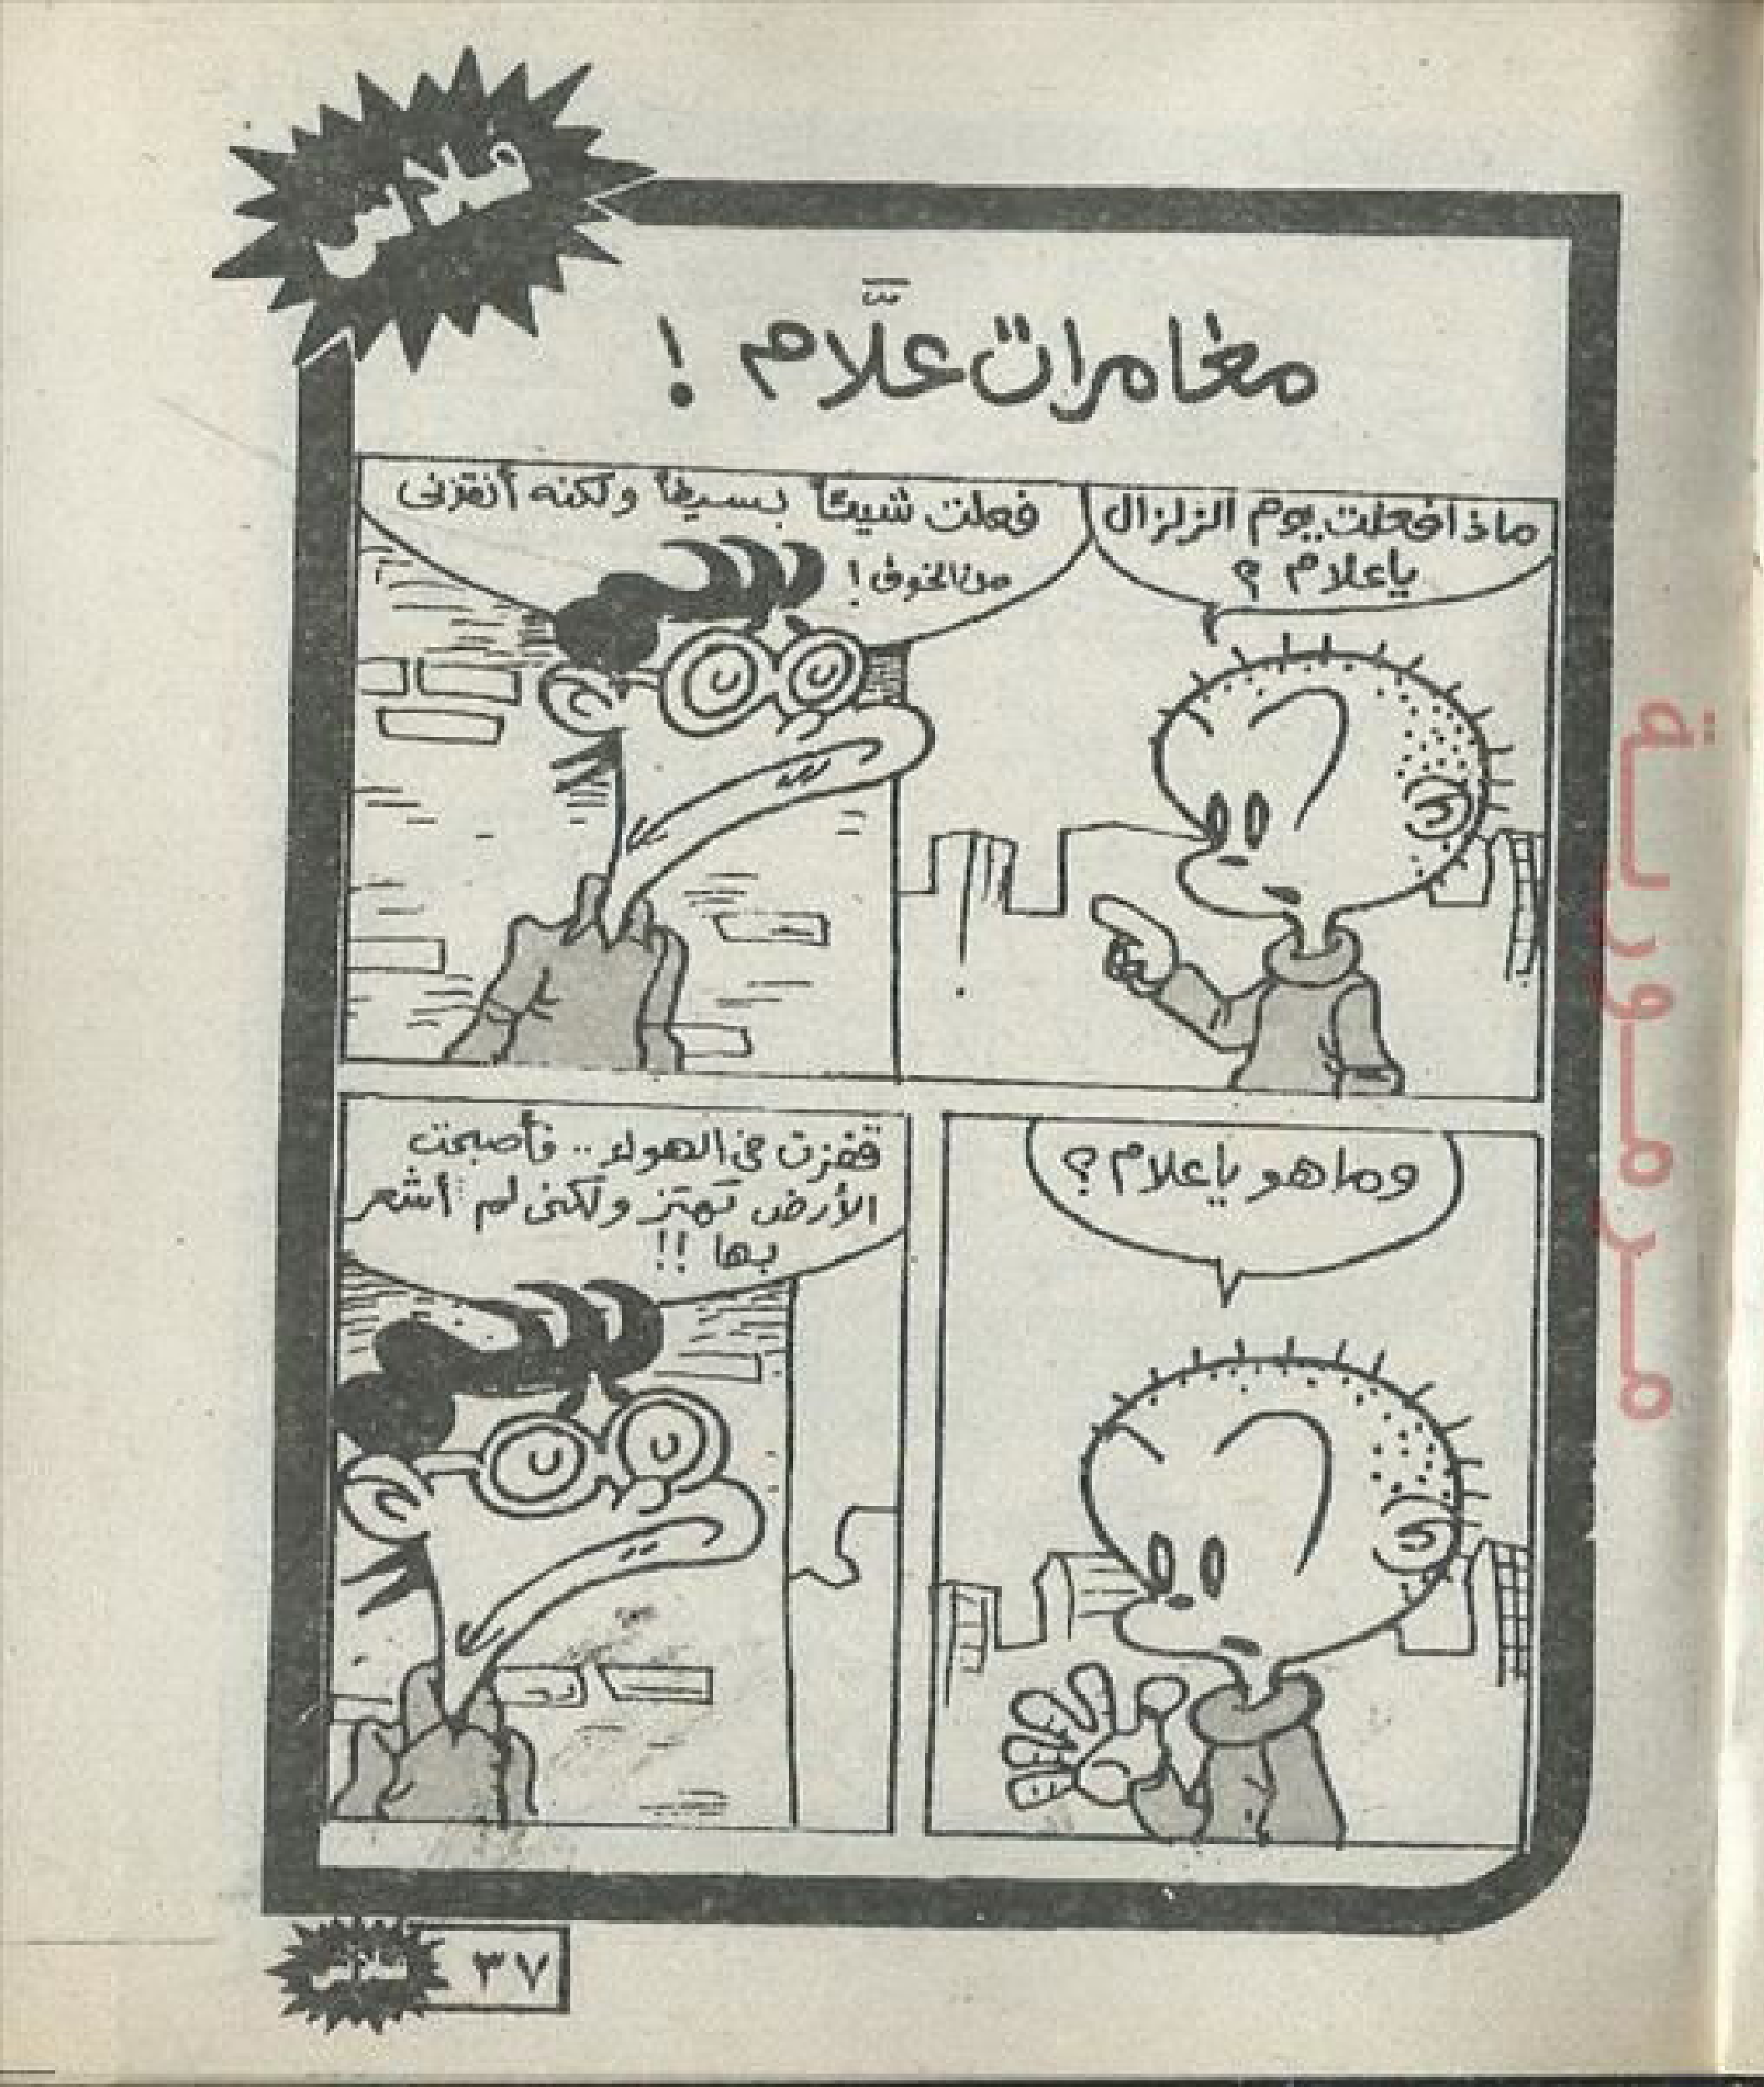 فلاش
مغامرات علَّام !
ماذا فعلت يوم الزلزال
يا علام ؟
فعلت شيئاً بسيطاً ولكنه أنقذنى
من الخوف !
وما هو يا علام ؟
قفزت فى الهواء .. فأصبحت
الأرض تهتز ولكنى لم أشعر
بها !!
٣٧
مرمورية